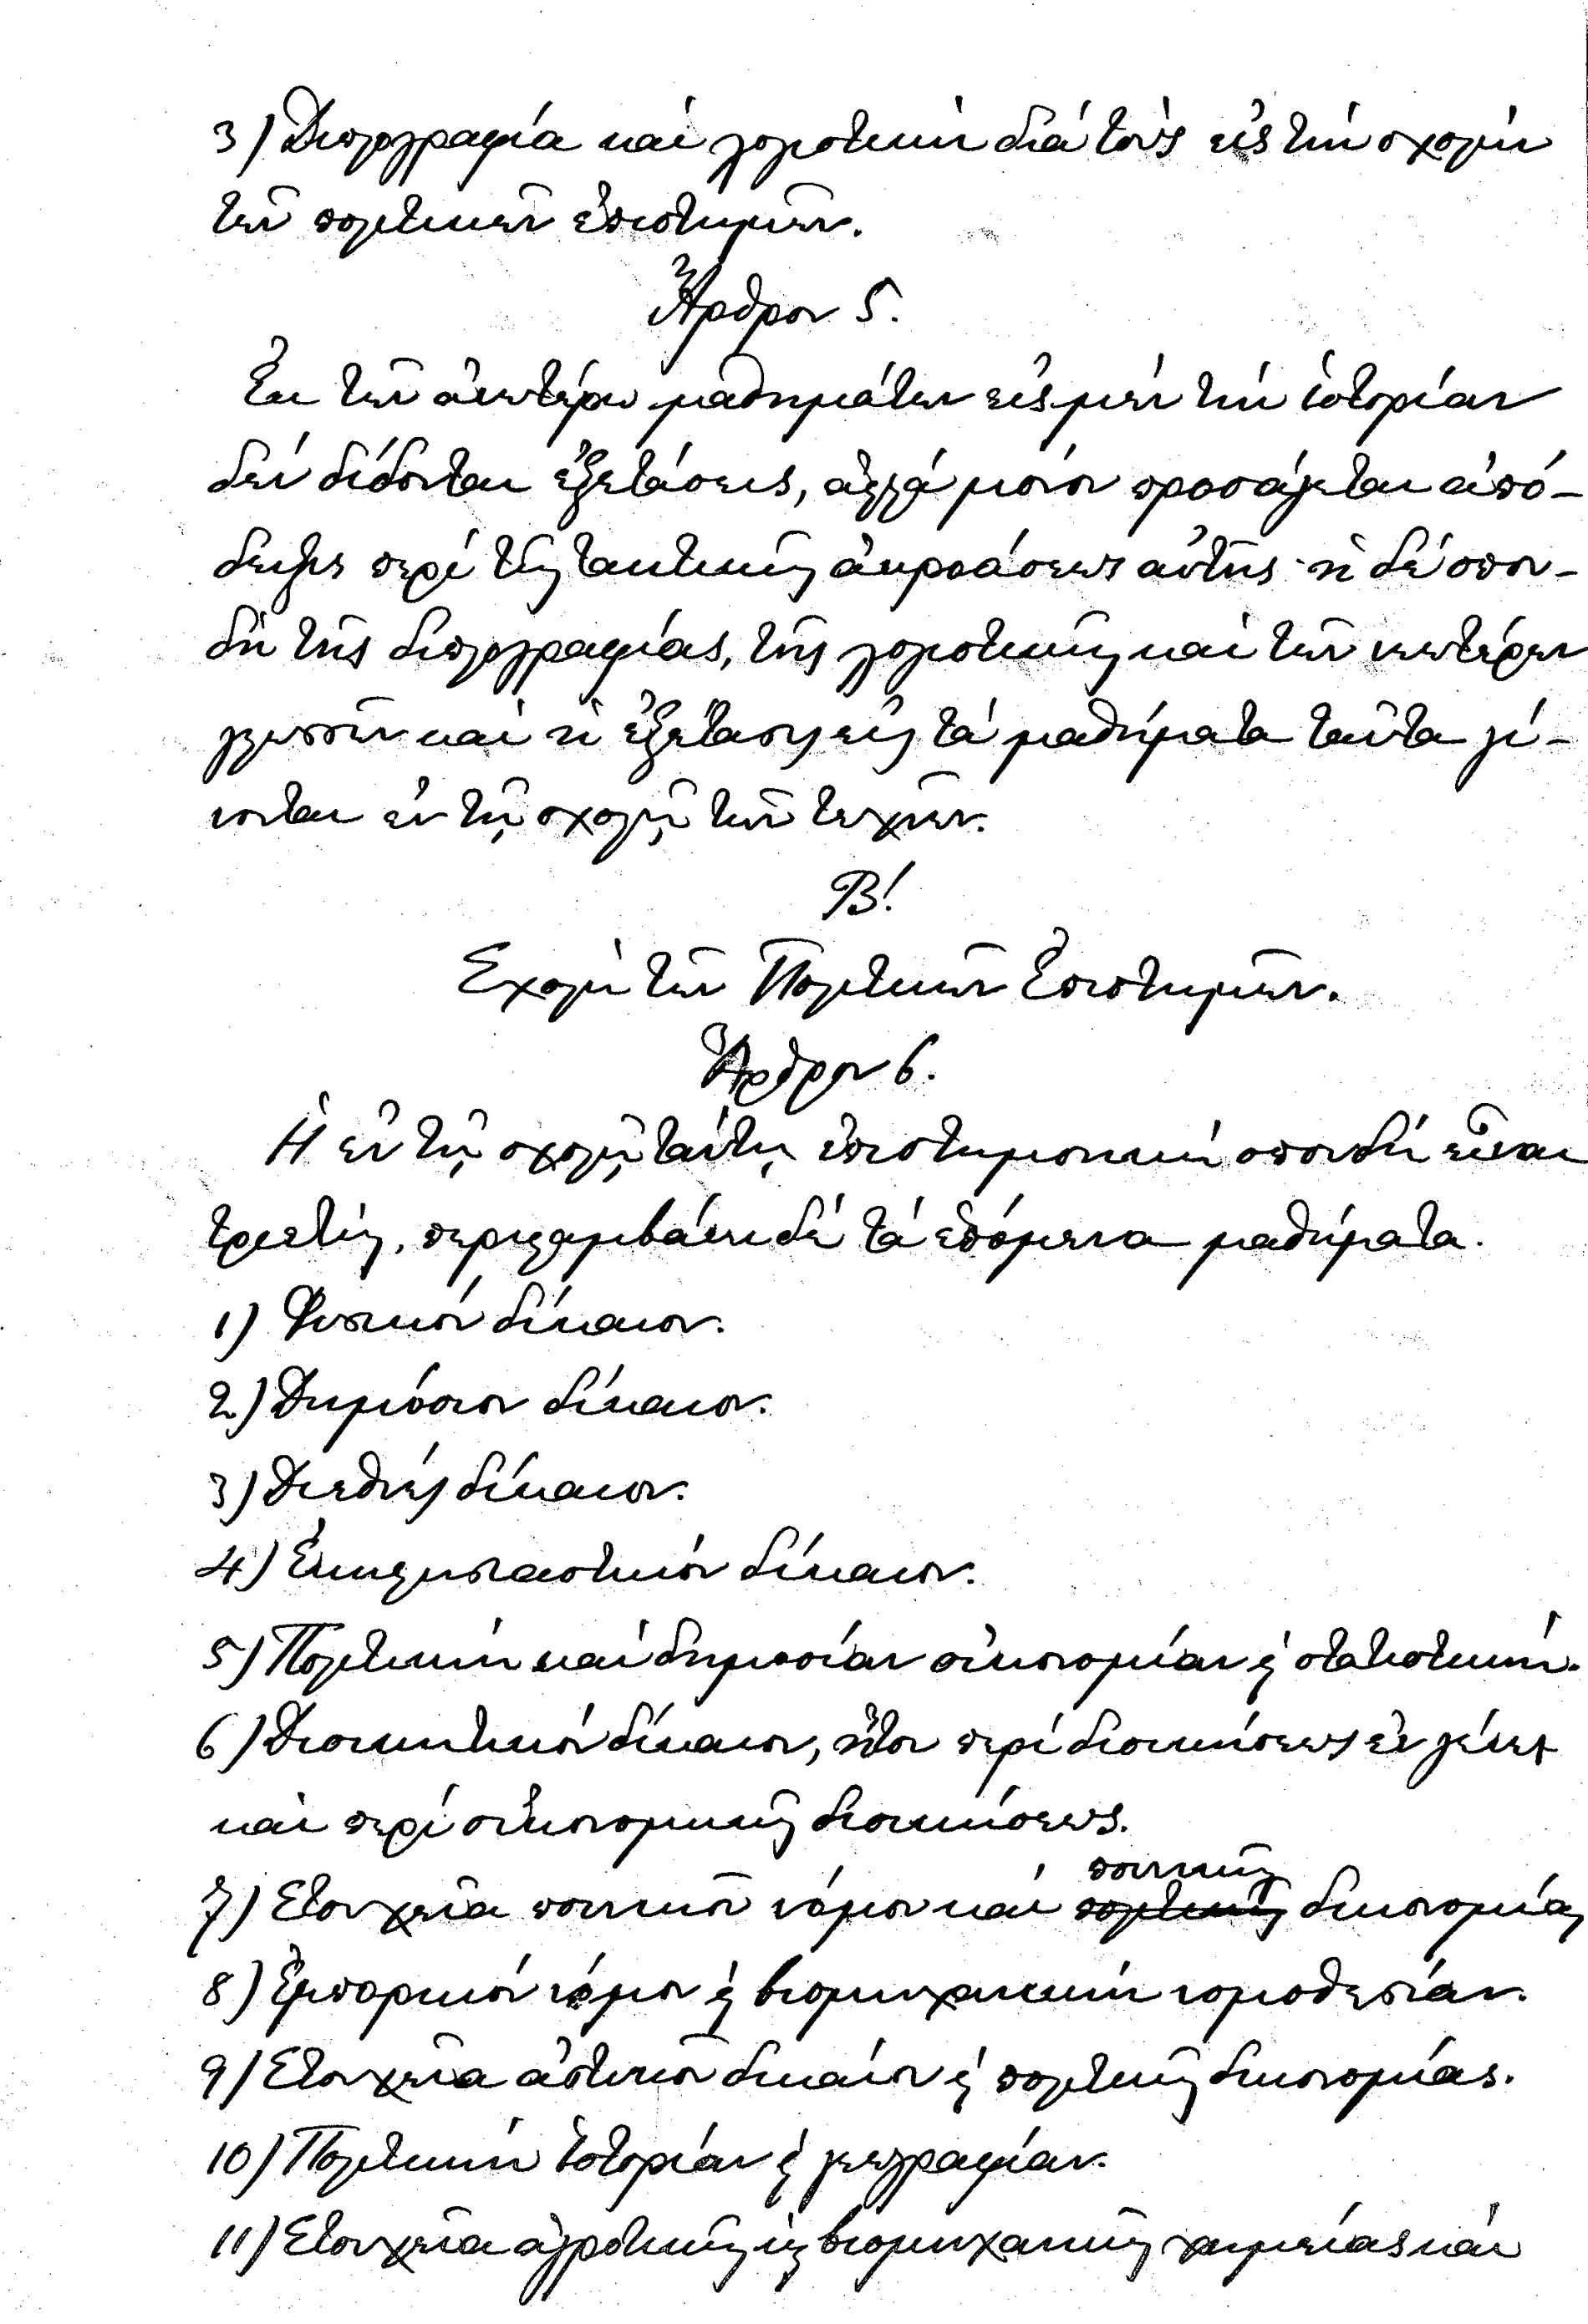 3) Διπλογραφία καὶ λογιστικὴ διὰ τοὺς εἰς τὴν σχολὴν
τῶν πολιτικῶν ἐπιστημῶν.
Ἄρθρον 5.
Ἐκ τῶν ἀνωτέρω μαθημάτων εἰς μὲν τὴν ἱστορίαν
δὲν δίδονται ἐξετάσεις, ἀλλὰ μόνον προσάγεται ἀπό-
δειξις περὶ τῆς τακτικῆς ἀκροάσεως αὐτῆς· ἡ δὲ σπου-
δὴ τῆς διπλογραφίας, τῆς λογιστικῆς καὶ τῶν νεωτέρων
γλωσσῶν καὶ ἡ ἐξέτασις εἰς τὰ μαθήματα ταῦτα γί-
νονται ἐν τῇ σχολῇ τῶν τεχνῶν.
Β!
Σχολὴ τῶν Πολιτικῶν Ἐπιστημῶν.
Ἄρθρον 6.
Ἡ ἐν τῇ σχολῇ ταύτῃ ἐπιστημονικὴ σπουδὴ εἶναι
τριετής, περιλαμβάνει δὲ τὰ ἑπόμενα μαθήματα.
1) Φυσικὸν δίκαιον.
2) Δημόσιον δίκαιον.
3) Διεθνὲς δίκαιον.
4) Ἐκκλησιαστικὸν δίκαιον.
5) Πολιτικὴν καὶ δημοσίαν οἰκονομίαν ϗ στατιστικήν.
6) Διοικητικὸν δίκαιον, ἤτοι περὶ διοικήσεως ἐν γένει
καὶ περὶ οἰκονομικῆς διοικήσεως.
ποινικῆς
7) Στοιχεῖα ποινικοῦ νόμου καὶ πολιτικῆς δικονομίας
8) Ἐμπορικὸν νόμον ϗ βιομηχανικὴν νομοθεσίαν.
9) Στοιχεῖα ἀστικοῦ δικαίου ϗ πολιτικῆς δικονομίας.
10) Πολιτικὴν ἱστορίαν ϗ γεωγραφίαν.
11) Στοιχεῖα ἀγροτικῆς ϗ βιομηχανικῆς χημείας καὶ